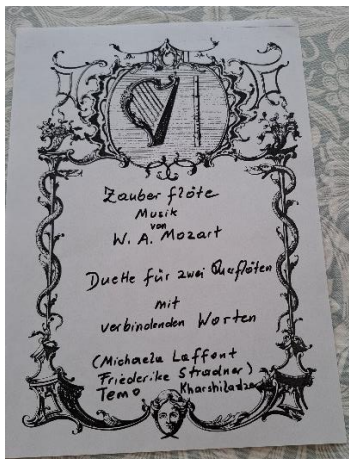 Zauberflöte
Musik
von
W. A. Mozart
Duette für zwei Querflöten
mit
verbindenden Worten
(Michaela Laffont
Friederike Stradner)
Temo Kharshiladze